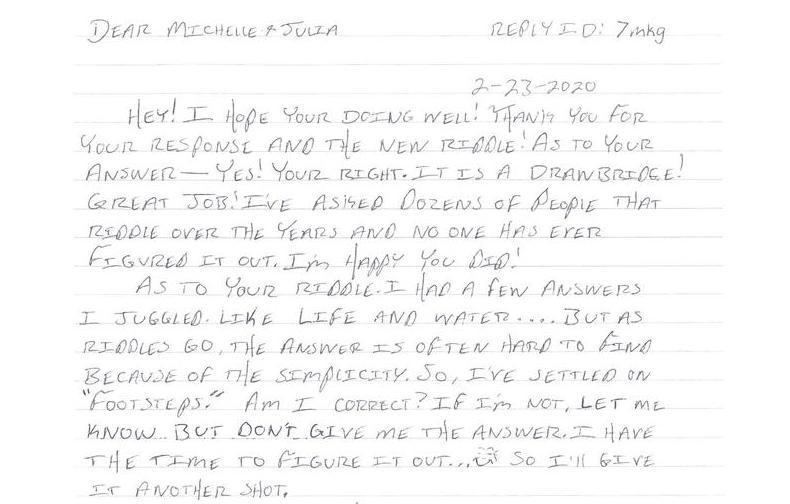 DEAR MICHELLE & JULIA REPLY ID: 7mkg
2-23-2020
HEY! I HOPE YOUR DOING WELL! THANK YOU FOR
YOUR RESPONSE AND THE NEW RIDDLE! AS TO YOUR
ANSWER — YES! YOUR RIGHT. IT IS A DRAWBRIDGE!
GREAT JOB! I'VE ASKED DOZENS OF PEOPLE THAT
RIDDLE OVER THE YEARS AND NO ONE HAS EVER
FIGURED IT OUT. I'm HAPPY YOU DID!
AS TO YOUR RIDDLE. I HAD A FEW ANSWERS
I JUGGLED. LIKE LIFE AND WATER.... BUT AS
RIDDLES GO, THE ANSWER IS OFTEN HARD TO FIND
BECAUSE OF THE SIMPLICITY. SO, I'VE SETTLED ON
"FOOTSTEPS." AM I CORRECT? IF I'm NOT, LET ME
KNOW.. BUT DON'T GIVE ME THE ANSWER. I HAVE
THE TIME TO FIGURE IT OUT... SO I'll GIVE
IT ANOTHER SHOT.